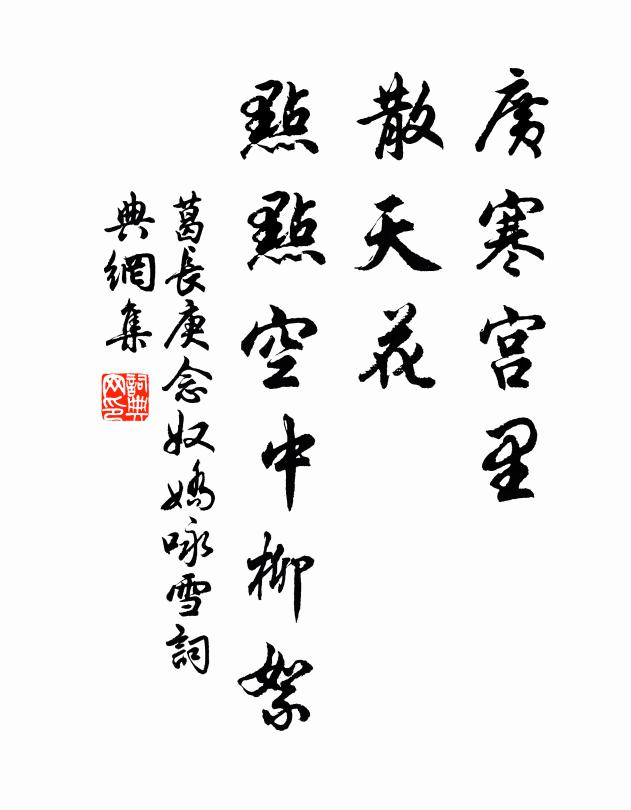 廣寒宫里
散天花
點點空中柳絮
葛長庚念奴嬌咏雪詞
典網集
詞典
网印